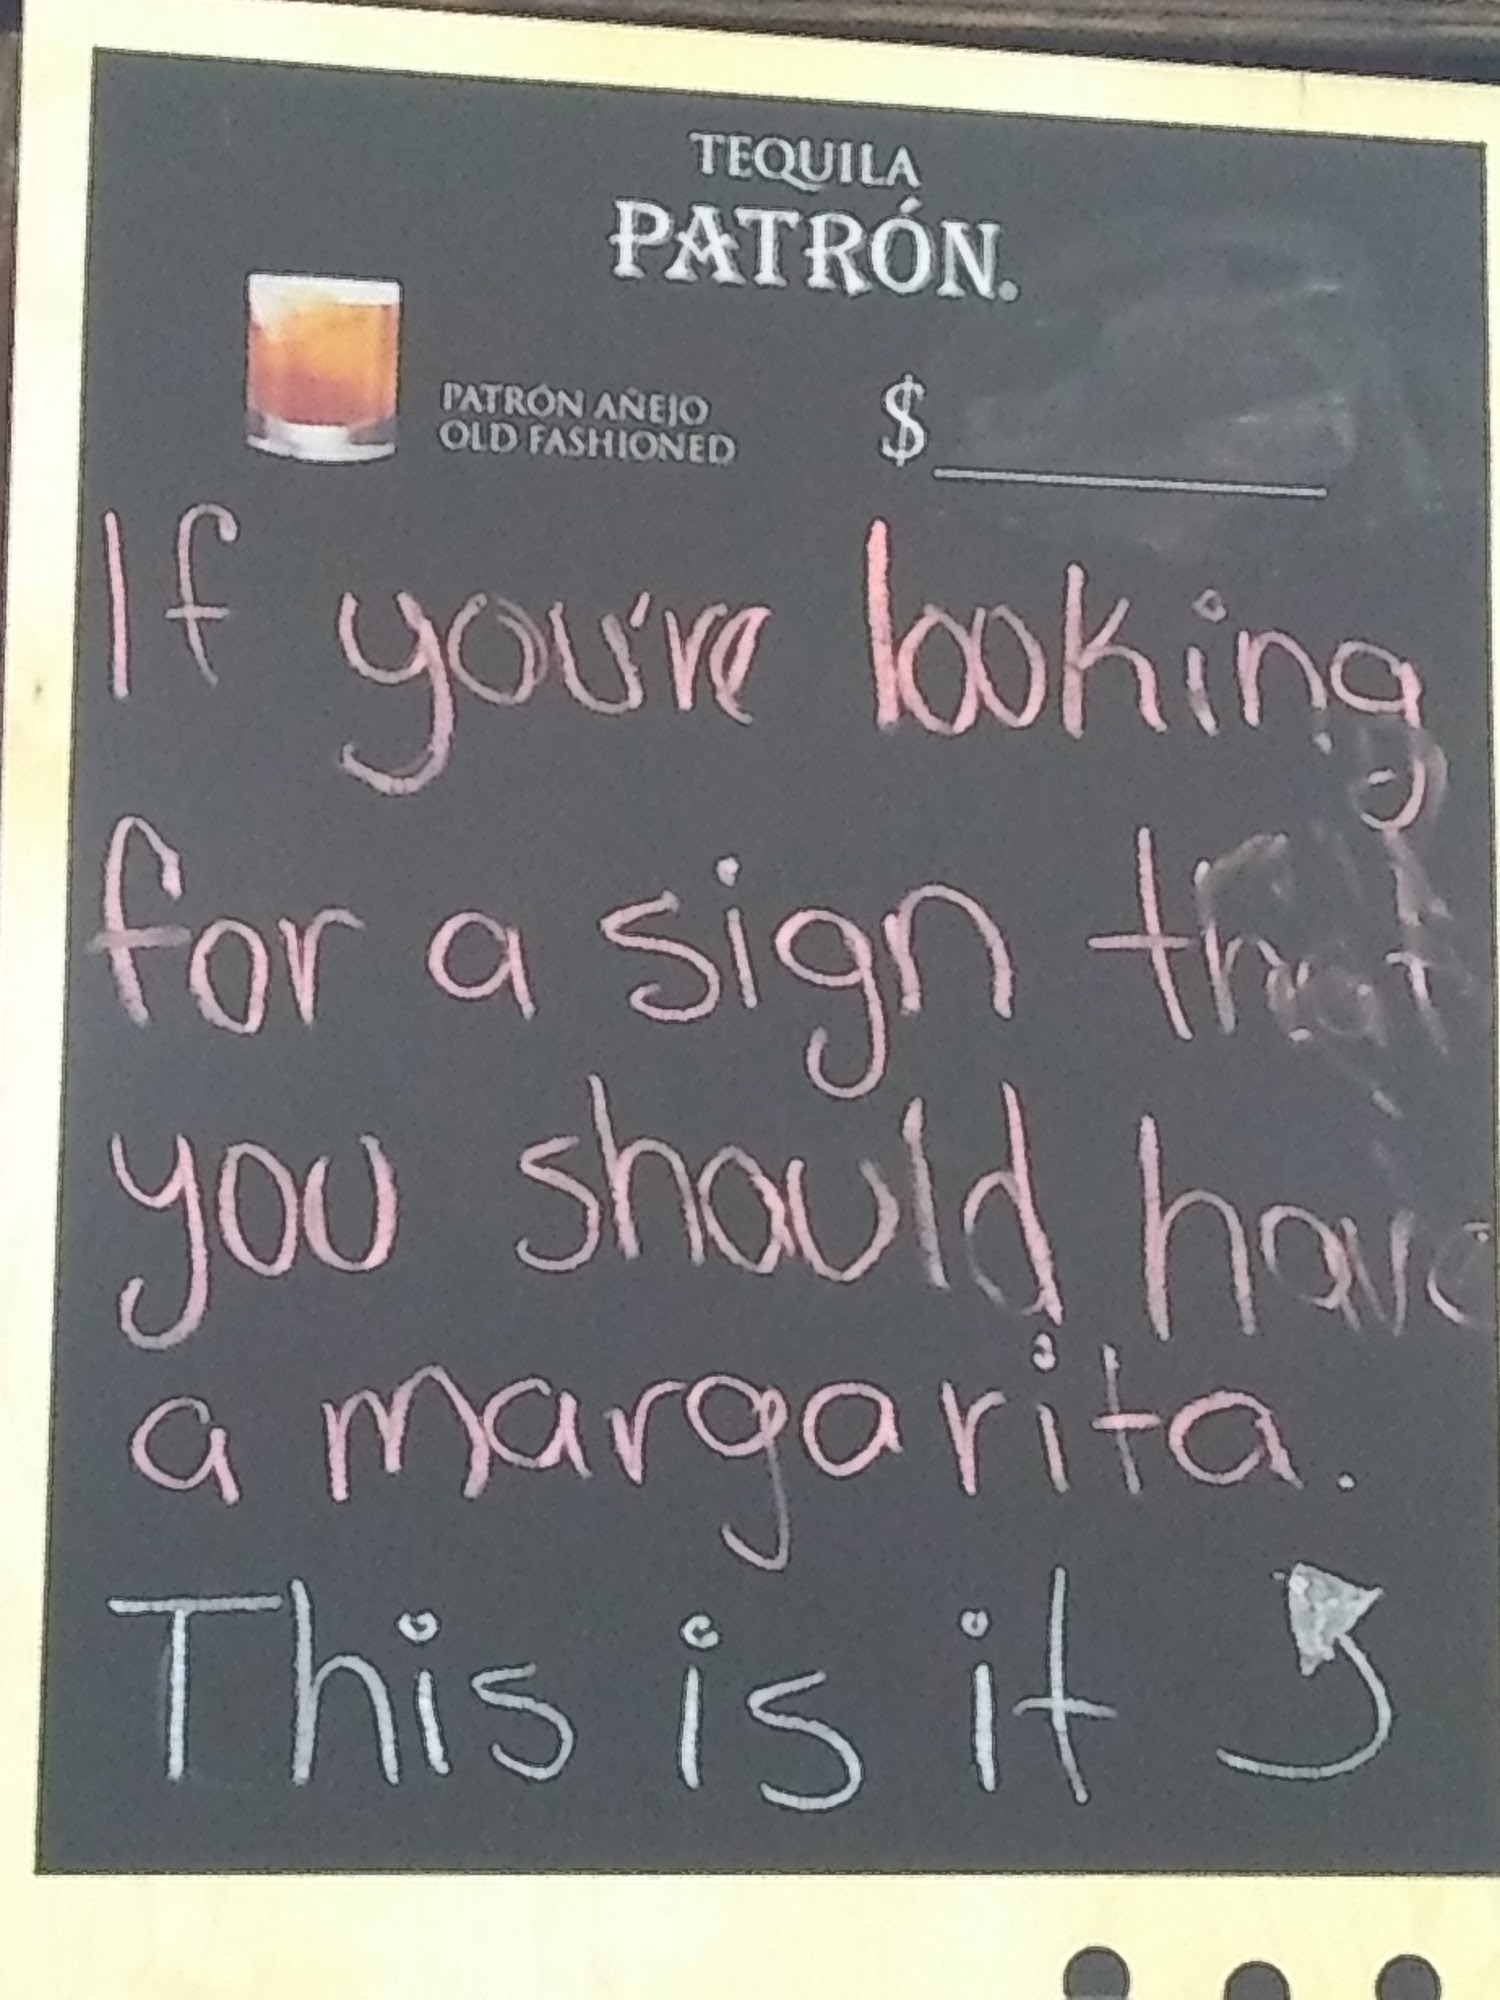 TEQUILA
PATRÓN.
PATRÓN AÑEJO
OLD FASHIONED
$
If you're looking
for a sign that
you should have
a margarita.
This is it